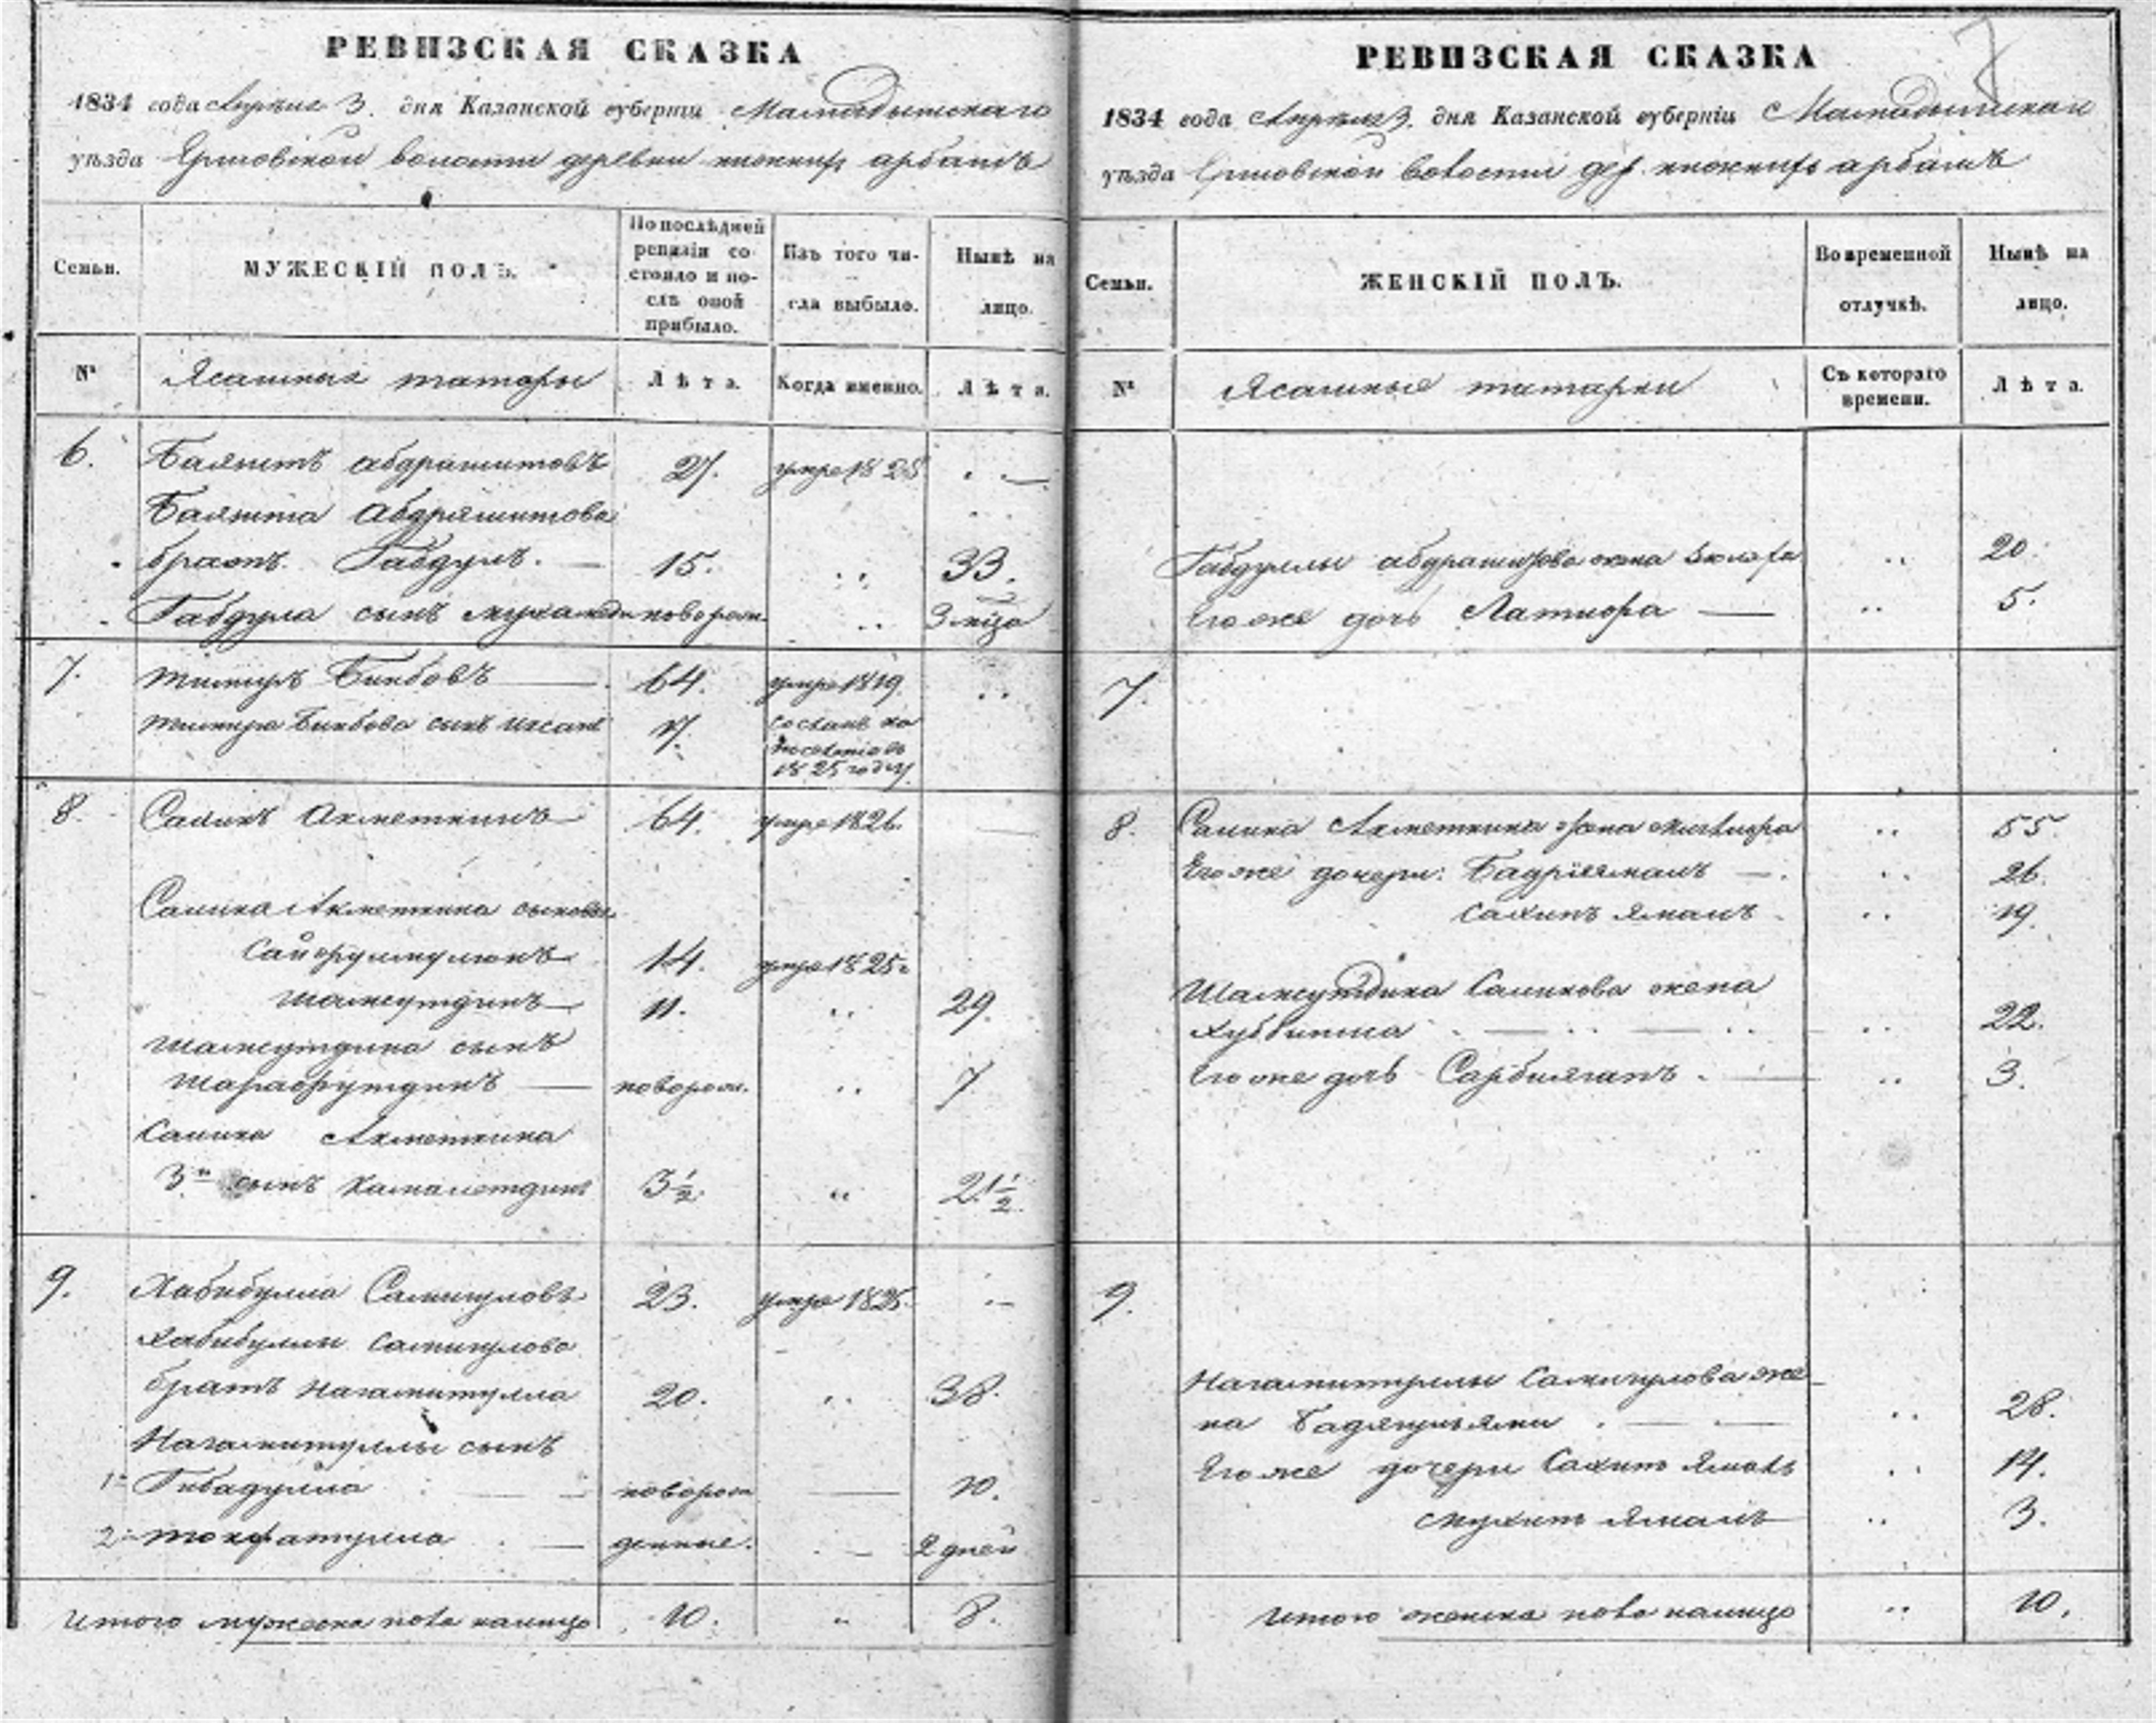 РЕВИЗСКАЯ СКАЗКА
1834 года Апреля 3. дня Казанской губернiи Мамадышскаго
уѣзда волости деревни нижнихъ арбашъ
Семьи.
МУЖЕСКIЙ ПОЛЪ.
По послѣдней ревизiи состояло и послѣ оной прибыло.
Изъ того числа выбыло.
Нынѣ на лицо.
№
Ясашныя татары
Лѣта.
Когда именно.
Лѣта.
6. Баязитъ абдрашитовъ 27. умре 1828
Баязита Абдряшитова
братъ Габдулъ. 15. 33.
Габдула сынъ новорож.
7. тимиръ Бикбовъ 64. умре 1819
тимира Бикбова сынъ ихсанъ 17. сосланъ на поселенiе въ 1825 году
8. Салихъ Ахметкинъ 64. умре 1826.
Салиха Ахметкина сыновья
Сайфулмулюкъ 14. умре 1825
шамсутдинъ 11. 29.
шамсутдина сынъ
шарафутдинъ новорож. 7
Салиха Ахметкина
3й сынъ камалетдинъ 3½ 21½
9. Хабибулла Самигуловъ 23. умре 1825.
Хабибуллы Самигулова
братъ Нагаматулла 20. 38.
Нагаматуллы сынъ
1й Гибадулла новорож 10.
2й тохфатулла денные. 2 дней
Итого мужеска пола налицо 10. 8.
РЕВИЗСКАЯ СКАЗКА
7
1834 года Апреля 3. дня Казанской губернiи Мамадышскаго
уѣзда волости дер. нижнихъ арбашъ
Семьи.
ЖЕНСКIЙ ПОЛЪ.
Во временной отлучкѣ.
Нынѣ на лицо.
№
Ясашные татарки
Съ котораго времени.
Лѣта.
Габдуллы абдрашитова жена 20.
Его же дочь Латифа 5.
7.
8. Салиха Ахметкина жена 55.
Его же дочери: Бадрiямалъ 26.
сахипъ ямалъ 19.
Шамсутдина Салихова жена
22.
Его же дочь 3.
9.
Нагаматуллы Самигулова же
на 28.
Его же дочери Сахип Ямалъ 14.
мухип ямалъ 3.
Итого женска пола налицо 10.